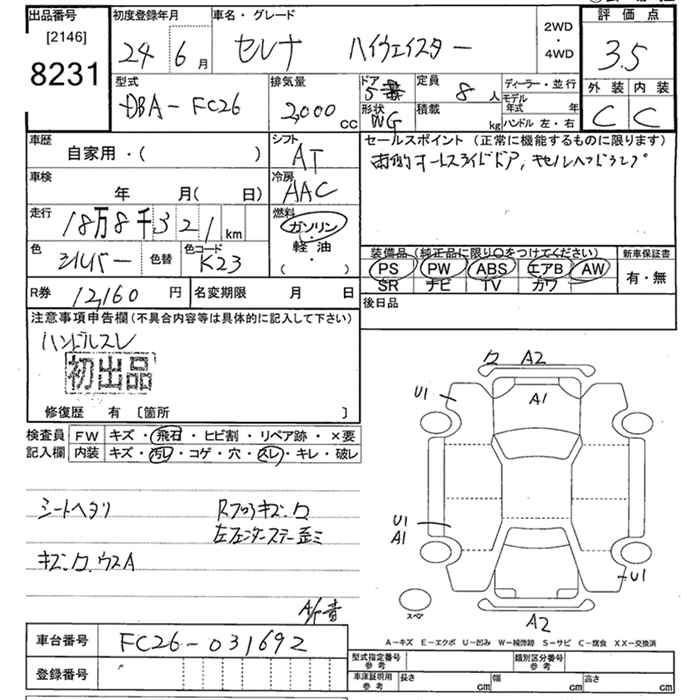 出品番号
[2146]
8231
初度登録年月
24年 6月
車名・グレード
セレナ ハイウェイスター
2WD
・
4WD
評価点
3.5
外装 内装
C C
型式
DBA-FC26
排気量
2,000 cc
ドア
5
形状
WG
定員
8 人
積載
kg
ディーラー・並行
モデル年式 年
ハンドル 左・右
車歴
自家用・( )
シフト
AT
車検
年 月( 日)
冷房
AAC
走行
18万8千321 km
燃料
ガソリン・
軽油
( ・ )
色
シルバー
色替
色コード
K23
セールスポイント (正常に機能するものに限ります)
両側オートスライドドア,キセノンヘッドランプ
装備品(純正品に限り○をつけてください)
PS PW ABS エアB AW
SR ナビ TV カワ
新車保証書
有・無
R券
12,160 円
名変期限 月 日
後日品
注意事項申告欄(不具合内容等は具体的に記入して下さい)
ハンドルスレ
初出品
修復歴 有 [箇所 ]
検査員
記入欄
FW キズ・飛石・ヒビ割・リペア跡・×要
内装 キズ・汚レ・コゲ・穴・スレ・キレ・破レ
シートヘタリ
キズ.ク.ウスA
A2
A1
U1
U1
A1
U1
A2
スペア
A-キズ E-エクボ U-凹み W-補修跡 S-サビ C-腐食 XX-交換済
車台番号
FC26-031692
登録番号
型式指定番号
参考
類別区分番号
参考
車庫証明用
参考
長さ cm
幅 cm
高さ cm